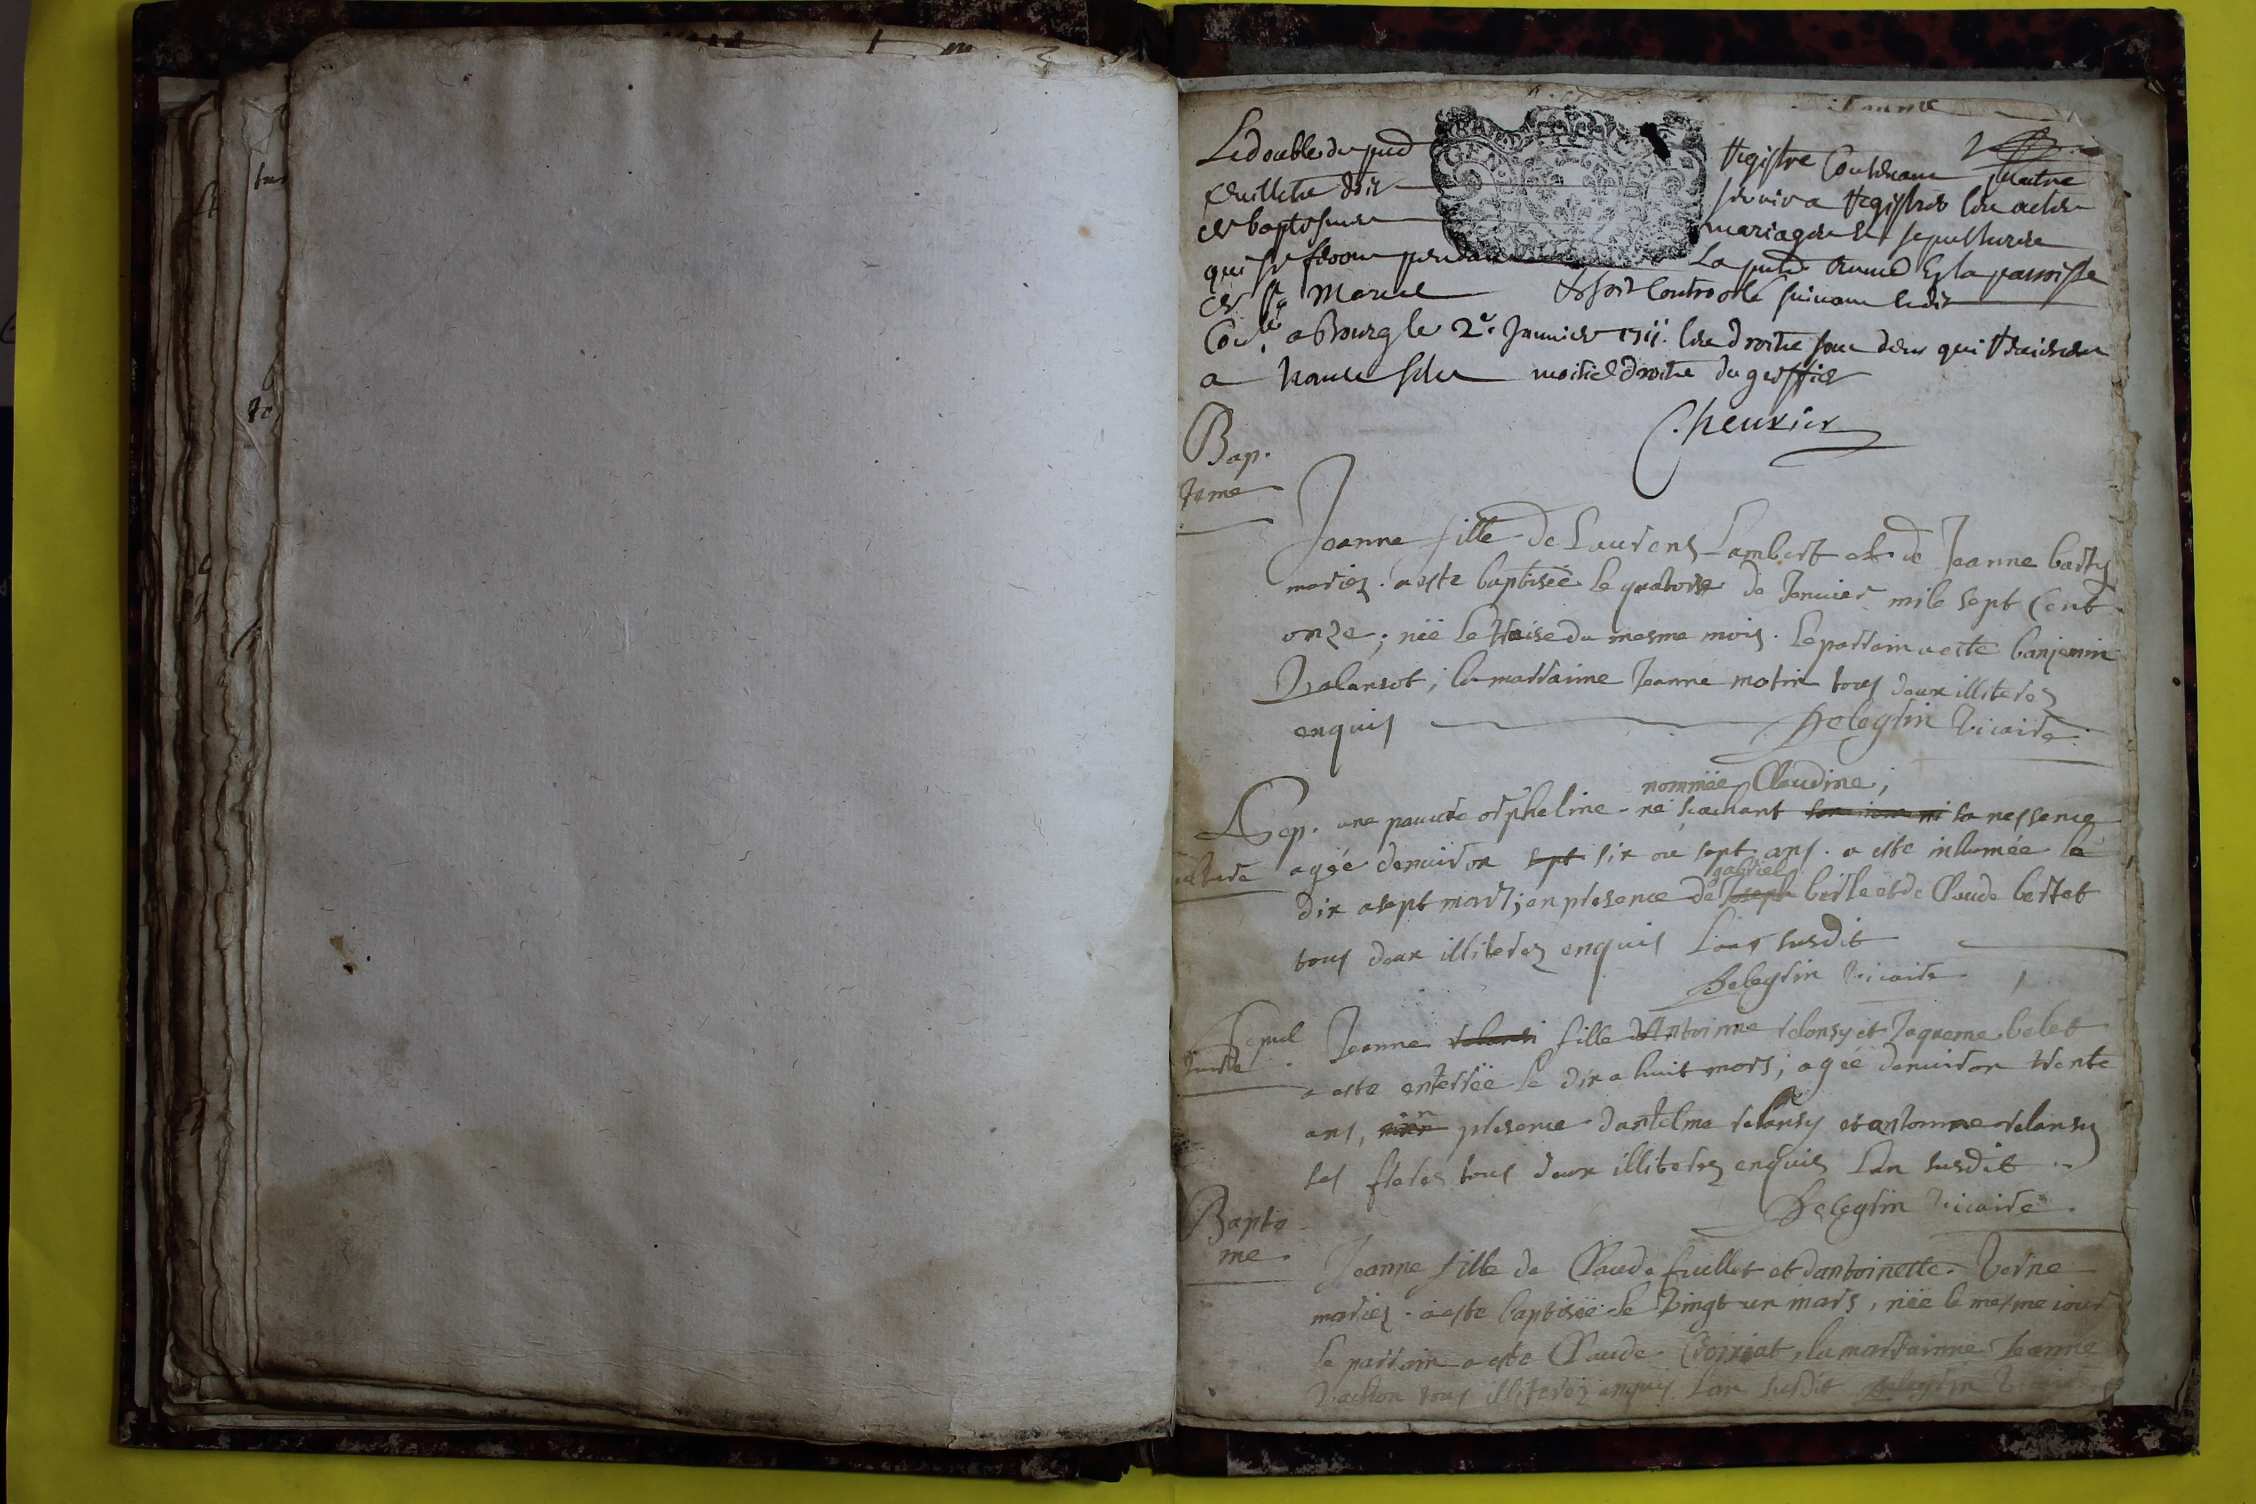 Le double du pnt Registre Contenant quatre
feuillets doit servir a Registrer les actes
de baptesmes mariages et sepultures
qui se feront pendant La pnte année En la parroisse
de St Marcel Et soit Controolé suivant ledit
Coll. a Bourg le 2e Janvier 1711. les droits sont deux qui
a moitié droits du greffier
Cheurier
Bap.
teme
Jeanne fille de Laurens Lambert et de Jeanne barty
mariez. a este baptisée le quatorse de Januier mile sept Cent
onze; née le traise du mesme mois. le parrain a este banjemin
la marraine Jeanne motin tous deux illiterez
enquis Vicaire
nommée Claudine;
Sep. une pauure orpheline ne scachant sa nessence
ulture agée denuiron sept six ou sept ans. a este inhumée le
gabriel
dix a sept mars; en presence de Joseph et de Claude bertet
tous deux illiterez enquis Lan susdit
Vicaire
Sepul Jeanne fille dAntoinne relansy et Jaqueme belet
ture a este enterrée le dix a huit mars; agée denuiron trente
ans, presence dantelme relansy et antoinne relansy
ses freres tous deux illiterez enquis Lan susdit
Vicaire
Bapte
me Jeanne fille de Claude fuillet et dantoinette. Verne
mariez. a este baptisée le Vingt un mars, née le mesme iour
le parrain a este Claude la marrainne Jeanne
tous illiterez enquis Lan susdit